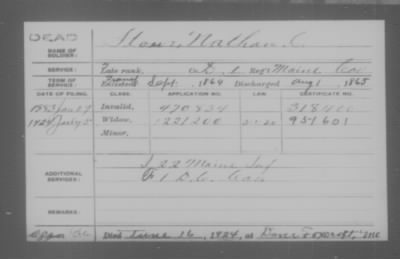 DEAD
NAME OF SOLDIER: Nathan C.
SERVICE: Late rank, Co. D, 1 Reg't Maine Cav
TERM OF SERVICE: Enlisted Sept. 1864 Discharged Aug 1, 1865
DATE OF FILING. CLASS. APPLICATION NO. LAW. CERTIFICATE NO.
Invalid, 470834 318400
1924 July 5 Widow, 1221200 951601
Minor,
ADDITIONAL SERVICES: I 22 Maine Inf
1 D.C. Cav
REMARKS:
Died June 16, 1924, at Dover Foxcroft, Me